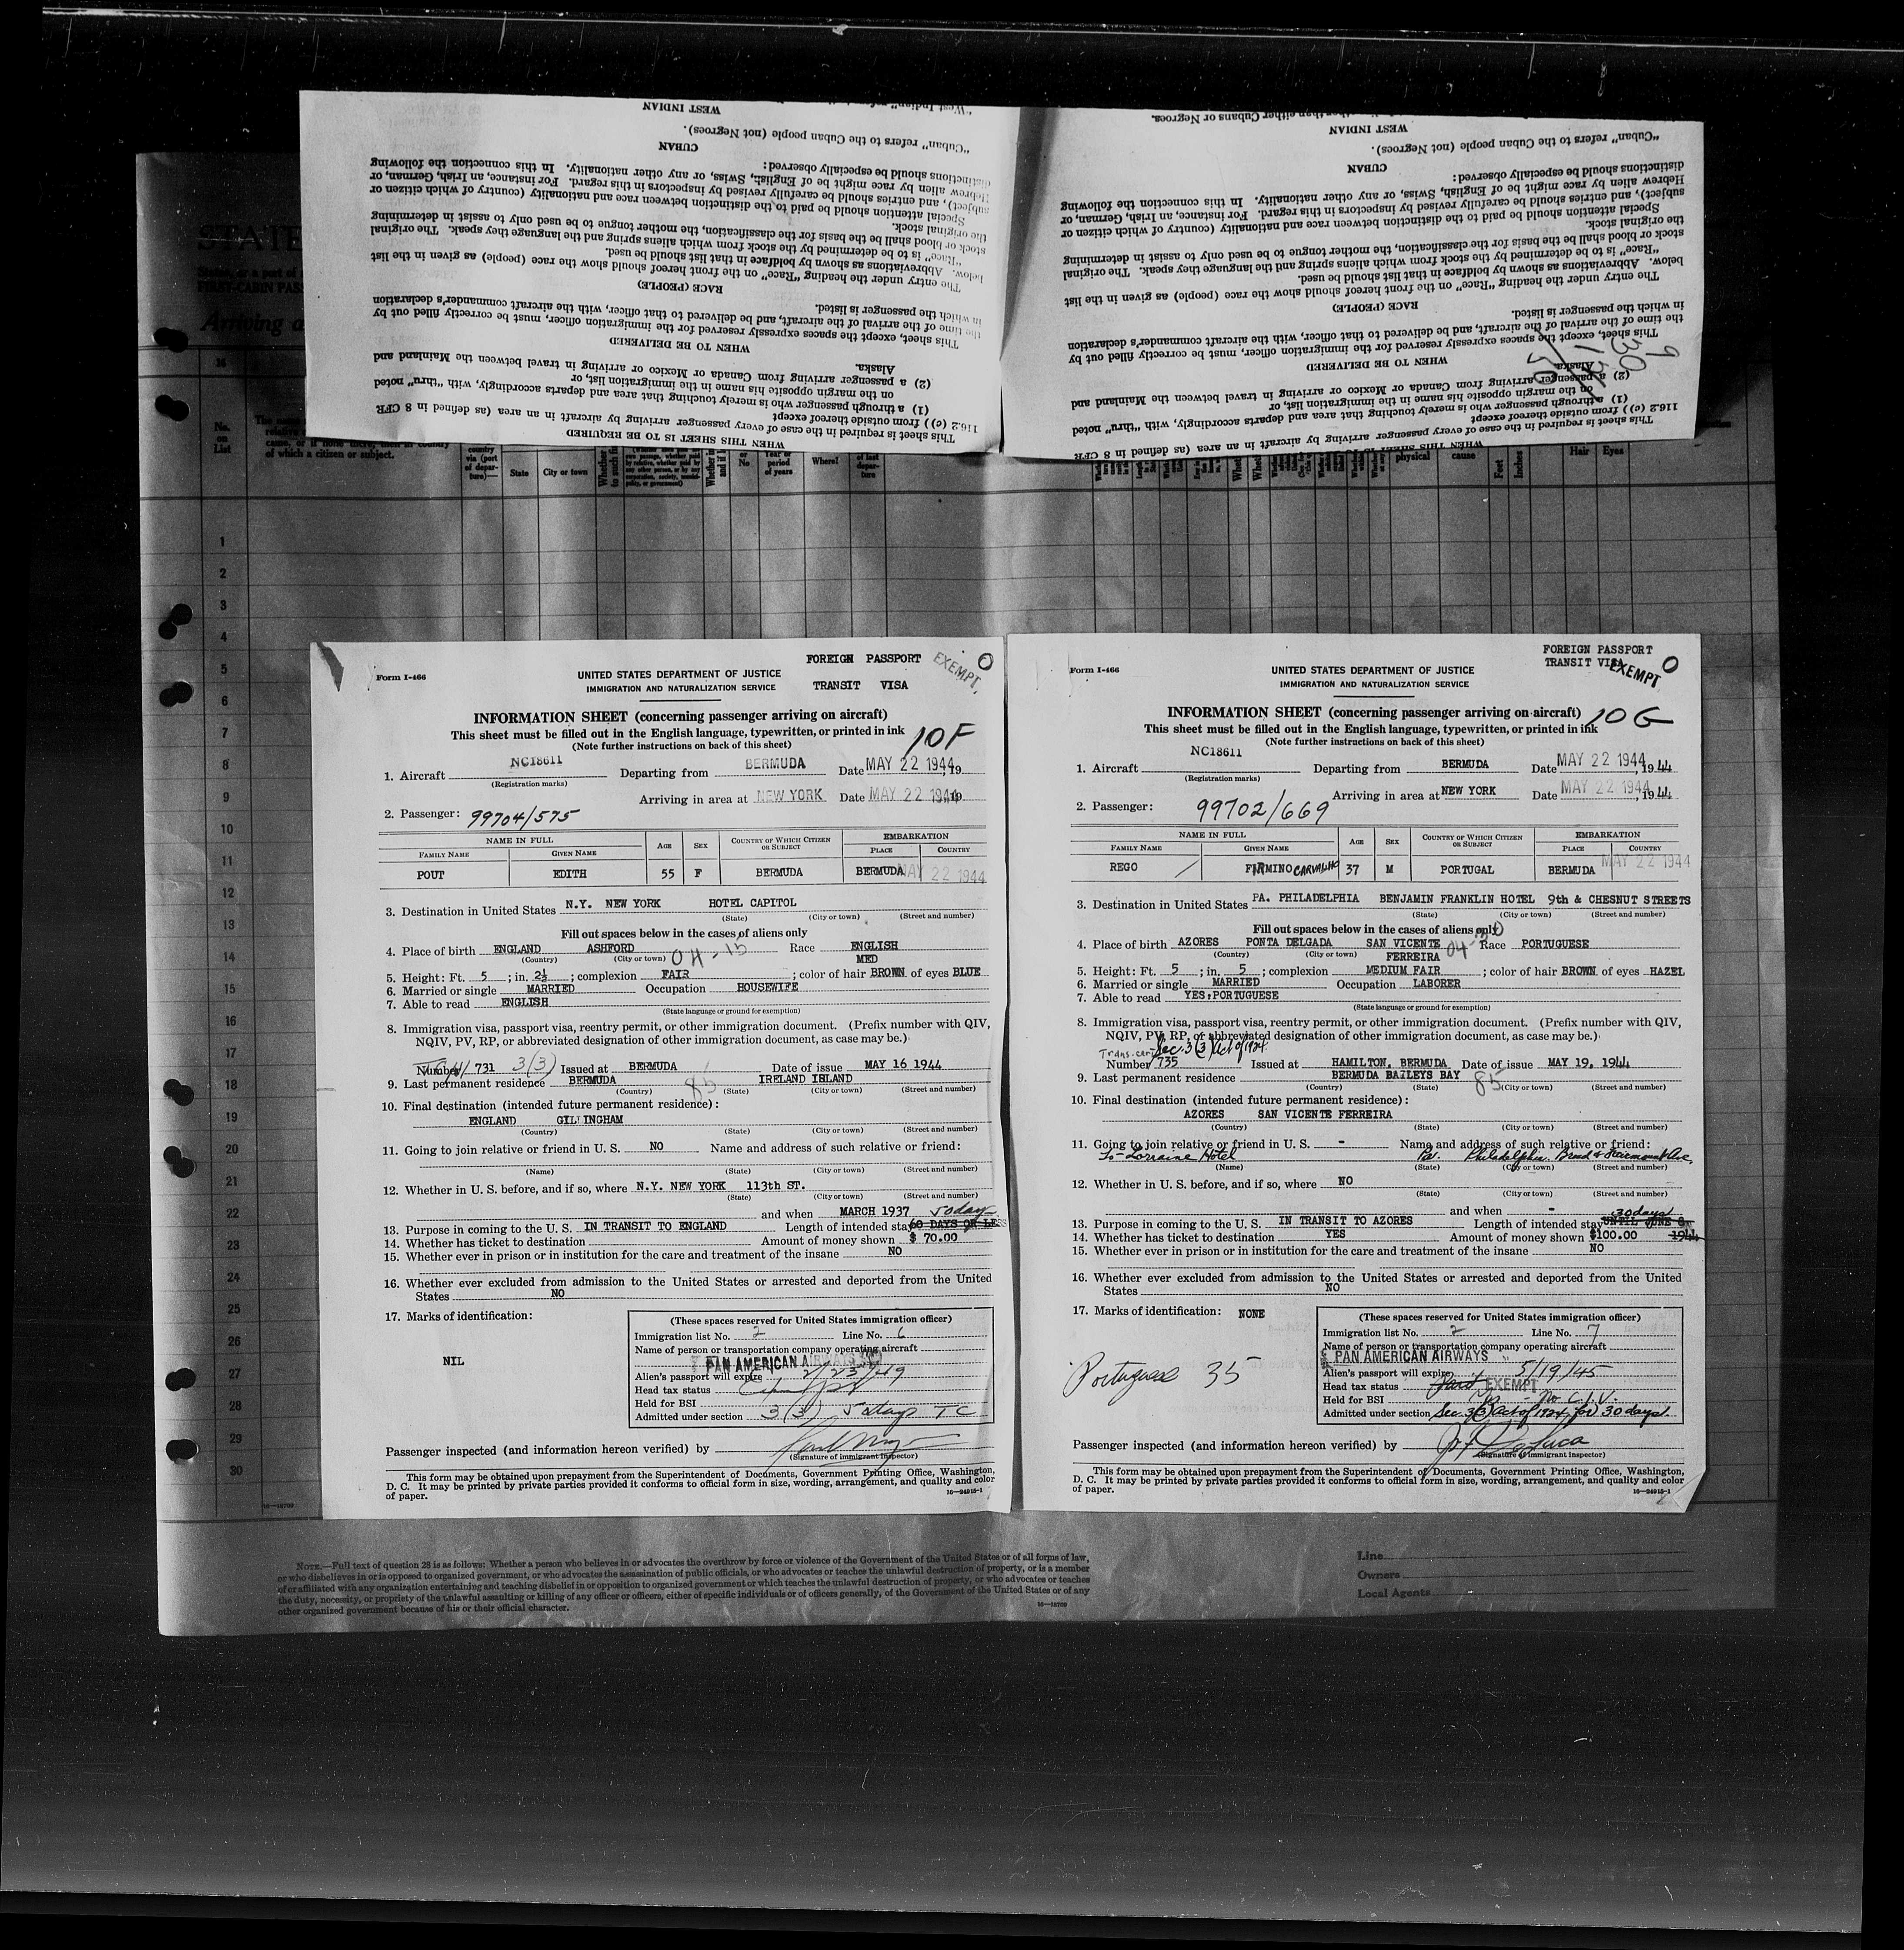 "West Indian" refers
WEST INDIAN
"Cuban" refers to the Cuban people (not Negroes).
CUBAN
distinctions should be especially observed:
Hebrew alien by race might be of English, Swiss, or any other nationality. In this connection the following
subject), and entries should be carefully revised by inspectors in this regard. For instance, an Irish, German, or
Special attention should be paid to the distinction between race and nationality (country of which citizen or
the original stock.
stock or blood shall be the basis for the classification, the mother tongue to be used only to assist in determining
"Race" is to be determined by the stock from which aliens spring and the language they speak. The original
below. Abbreviations as shown by boldface in that list should be used.
The entry under the heading "Race" on the front hereof should show the race (people) as given in the list
RACE (PEOPLE)
in which the passenger is listed.
the time of the arrival of the aircraft, and be delivered to that officer, with the aircraft commander's declaration
This sheet, except the spaces expressly reserved for the immigration officer, must be correctly filled out by
WHEN TO BE DELIVERED
Alaska.
(2) a passenger arriving from Canada or Mexico or arriving in travel between the Mainland and
on the margin opposite his name in the immigration list, or
(1) a through passenger who is merely touching that area and departs accordingly, with "thru" noted
116.2 (c)) from outside thereof except
This sheet is required in the case of every passenger arriving by aircraft in an area (as defined in 8 CFR
WHEN THIS SHEET IS TO BE REQUIRED
either Cubans or Negroes.
WEST INDIAN
"Cuban" refers to the Cuban people (not Negroes).
CUBAN
distinctions should be especially observed:
Hebrew alien by race might be of English, Swiss, or any other nationality. In this connection the following
subject), and entries should be carefully revised by inspectors in this regard. For instance, an Irish, German, or
Special attention should be paid to the distinction between race and nationality (country of which citizen or
the original stock.
stock or blood shall be the basis for the classification, the mother tongue to be used only to assist in determining
"Race" is to be determined by the stock from which aliens spring and the language they speak. The original
below. Abbreviations as shown by boldface in that list should be used.
The entry under the heading "Race" on the front hereof should show the race (people) as given in the list
RACE (PEOPLE)
in which the passenger is listed.
the time of the arrival of the aircraft, and be delivered to that officer, with the aircraft commander's declaration
This sheet, except the spaces expressly reserved for the immigration officer, must be correctly filled out by
WHEN TO BE DELIVERED
Alaska.
(2) a passenger arriving from Canada or Mexico or arriving in travel between the Mainland and
on the margin opposite his name in the immigration list, or
(1) a through passenger who is merely touching that area and departs accordingly, with "thru" noted
116.2 (c)) from outside thereof except
This sheet is required in the case of every passenger arriving by aircraft in an area (as defined in 8 CFR
WHEN THIS SHEET IS TO BE REQUIRED
STATE
FIRST-CABIN PAS
Arriving a
16
No. on List
of which a citizen or subject.
country via (port of departure)—
State
City or town
or No
Year or period of years
Where?
of last departure
physical
cause
Feet
Inches
Hair
Eyes
1
2
3
4
5
6
7
8
9
10
11
12
13
14
15
16
17
18
19
20
21
22
23
24
25
26
27
28
29
30
FOREIGN PASSPORT
TRANSIT VISA
EXEMPT
0
Form I-466
UNITED STATES DEPARTMENT OF JUSTICE
IMMIGRATION AND NATURALIZATION SERVICE
INFORMATION SHEET (concerning passenger arriving on aircraft)
This sheet must be filled out in the English language, typewritten, or printed in ink
(Note further instructions on back of this sheet)
10F
1. Aircraft NC18611 Departing from BERMUDA Date MAY 22 1944, 19
(Registration marks)
Arriving in area at NEW YORK Date MAY 22 1944 19
2. Passenger: 99704/575
NAME IN FULL AGE SEX COUNTRY OF WHICH CITIZEN OR SUBJECT EMBARKATION
FAMILY NAME GIVEN NAME PLACE COUNTRY
POUT EDITH 55 F BERMUDA BERMUDA MAY 22 1944
3. Destination in United States N.Y. NEW YORK HOTEL CAPITOL
(State) (City or town) (Street and number)
Fill out spaces below in the cases of aliens only
4. Place of birth ENGLAND ASHFORD 04-15 Race ENGLISH
(Country) (City or town) MED
5. Height: Ft. 5; in. 2½; complexion FAIR; color of hair BROWN of eyes BLUE
6. Married or single MARRIED Occupation HOUSEWIFE
7. Able to read ENGLISH
(State language or ground for exemption)
8. Immigration visa, passport visa, reentry permit, or other immigration document. (Prefix number with QIV,
NQIV, PV, RP, or abbreviated designation of other immigration document, as case may be.)
Number 731 3(3) Issued at BERMUDA Date of issue MAY 16 1944
9. Last permanent residence BERMUDA 85 IRELAND ISLAND
(Country) (State) (City or town) (Street and number)
10. Final destination (intended future permanent residence):
ENGLAND GILLINGHAM
(Country) (State) (City or town) (Street and number)
11. Going to join relative or friend in U. S. NO Name and address of such relative or friend:
(Name) (State) (City or town) (Street and number)
12. Whether in U. S. before, and if so, where N.Y. NEW YORK 113th ST.
(State) (City or town) (Street and number)
and when MARCH 1937 50 days
13. Purpose in coming to the U. S. IN TRANSIT TO ENGLAND Length of intended stay 60 DAYS OR LESS
14. Whether has ticket to destination Amount of money shown $ 70.00
15. Whether ever in prison or in institution for the care and treatment of the insane NO
16. Whether ever excluded from admission to the United States or arrested and deported from the United
States NO
17. Marks of identification:
NIL
(These spaces reserved for United States immigration officer)
Immigration list No. 2 Line No. 6
Name of person or transportation company operating aircraft
PAN AMERICAN AIRWAYS
Alien's passport will expire 2/23/49
Head tax status
Held for BSI
Admitted under section 3 (3) 5 days TC
Passenger inspected (and information hereon verified) by
(Signature of immigrant inspector)
This form may be obtained upon prepayment from the Superintendent of Documents, Government Printing Office, Washington,
D. C. It may be printed by private parties provided it conforms to official form in size, wording, arrangement, and quality and color
of paper.
16—24915-1
FOREIGN PASSPORT
TRANSIT VISA
EXEMPT
0
Form I-466
UNITED STATES DEPARTMENT OF JUSTICE
IMMIGRATION AND NATURALIZATION SERVICE
INFORMATION SHEET (concerning passenger arriving on aircraft)
This sheet must be filled out in the English language, typewritten, or printed in ink
(Note further instructions on back of this sheet)
10G
1. Aircraft NC18611 Departing from BERMUDA Date MAY 22 1944, 1944
(Registration marks)
Arriving in area at NEW YORK Date MAY 22 1944, 1944
2. Passenger: 99702/669
NAME IN FULL AGE SEX COUNTRY OF WHICH CITIZEN OR SUBJECT EMBARKATION
FAMILY NAME GIVEN NAME PLACE COUNTRY
REGO / FIRMINO CARVALHO 37 M PORTUGAL BERMUDA MAY 22 1944
3. Destination in United States PA. PHILADELPHIA BENJAMIN FRANKLIN HOTEL 9th & CHESNUT STREETS
(State) (City or town) (Street and number)
Fill out spaces below in the cases of aliens only
4. Place of birth AZORES PONTA DELGADA SAN VICENTE Race PORTUGUESE
(Country) (City or town) FERREIRA
5. Height: Ft. 5; in. 5; complexion MEDIUM FAIR; color of hair BROWN of eyes HAZEL
6. Married or single MARRIED Occupation LABORER
7. Able to read YES: PORTUGUESE
(State language or ground for exemption)
8. Immigration visa, passport visa, reentry permit, or other immigration document. (Prefix number with QIV,
NQIV, PV, RP, or abbreviated designation of other immigration document, as case may be.)
Trans. cert. Sec. 3 (3) Act of 1924
Number 735 Issued at HAMILTON, BERMUDA Date of issue MAY 19, 1944
9. Last permanent residence BERMUDA BAILEYS BAY 85
(Country) (State) (City or town) (Street and number)
10. Final destination (intended future permanent residence):
AZORES SAN VICENTE FERREIRA
(Country) (State) (City or town) (Street and number)
11. Going to join relative or friend in U. S. - Name and address of such relative or friend:
To - Lorraine Hotel Pa. Philadelphia. Broad & Fairmount Ave.
(Name) (State) (City or town) (Street and number)
12. Whether in U. S. before, and if so, where NO
(State) (City or town) (Street and number)
and when - 30 days
13. Purpose in coming to the U. S. IN TRANSIT TO AZORES Length of intended stay UNTIL JUNE
14. Whether has ticket to destination YES Amount of money shown $100.00 1944
15. Whether ever in prison or in institution for the care and treatment of the insane NO
16. Whether ever excluded from admission to the United States or arrested and deported from the United
States NO
17. Marks of identification: NONE
Portuguese 35
(These spaces reserved for United States immigration officer)
Immigration list No. 2 Line No. 7
Name of person or transportation company operating aircraft
PAN AMERICAN AIRWAYS
Alien's passport will expire 5/19/45
Head tax status EXEMPT
Held for BSI No C.I.V.
Admitted under section Sec. 3(3) Act of 1924 for 30 days.
Passenger inspected (and information hereon verified) by
(Signature of immigrant inspector)
This form may be obtained upon prepayment from the Superintendent of Documents, Government Printing Office, Washington,
D. C. It may be printed by private parties provided it conforms to official form in size, wording, arrangement, and quality and color
of paper.
16—24915-1
NOTE.—Full text of question 28 is as follows: Whether a person who believes in or advocates the overthrow by force or violence of the Government of the United States or of all forms of law,
or who disbelieves in or is opposed to organized government, or who advocates the assassination of public officials, or who advocates or teaches the unlawful destruction of property, or is a member
of or affiliated with any organization entertaining and teaching disbelief in or opposition to organized government or which teaches the unlawful destruction of property, or who advocates or teaches
the duty, necessity, or propriety of the unlawful assaulting or killing of any officer or officers, either of specific individuals or of officers generally, of the Government of the United States or of any
other organized government because of his or their official character.
Line
Owners
Local Agents